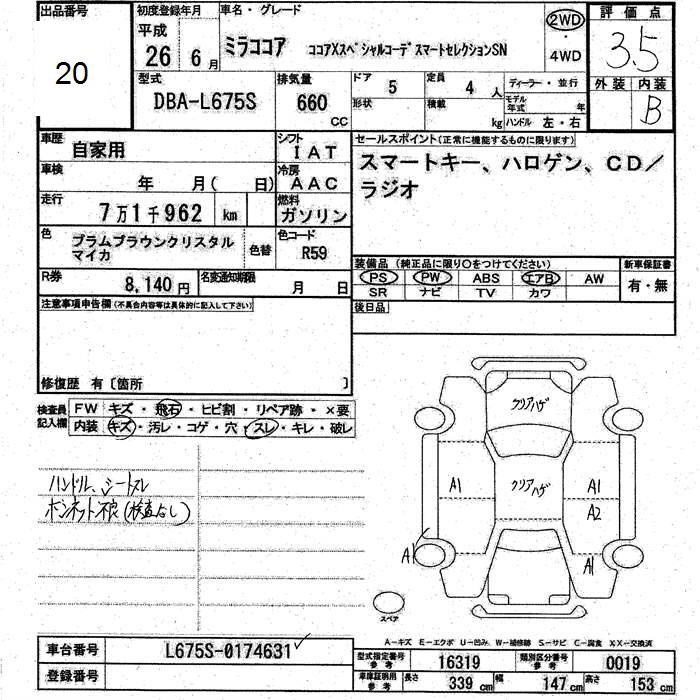 出品番号
20
初度登録年月
平成
26年 6月
車名・グレード
ミラココア ココアXスペシャルコーデ スマートセレクションSN
2WD
・
4WD
評価点
3.5
外装 内装
B
型式
DBA-L675S
排気量
660
CC
ドア 5
定員 4 人
ディーラー・並行
形状
積載 kg
モデル年式 年
ハンドル 左・右
車歴 自家用
シフト IAT
車検 年 月( 日)
冷房 AAC
走行 7万1千962 km
燃料 ガソリン
色 プラムブラウンクリスタルマイカ
色替
色コード R59
R券 8,140円
名変通知期限 月 日
セールスポイント(正常に機能するものに限ります)
スマートキー、ハロゲン、CD/
ラジオ
装備品(純正品に限り○をつけてください)
PS PW ABS エアB AW
SR ナビ TV カワ
新車保証書
有・無
後日品
注意事項申告欄(不具合内容等は具体的に記入して下さい)
修復歴 有〔箇所 〕
検査員記入欄
FW キズ・飛石・ヒビ割・リペア跡・×要
内装 キズ・汚レ・コゲ・穴・スレ・キレ・破レ
ハンドル、シートスレ
ボンネット不良(検査なし)
クリアハゲ
クリアハゲ
A1
A1
A2
A1
A1
スペア
A-キズ E-エクボ U-凹み W-補修跡 S-サビ C-腐食 XX-交換済
車台番号 L675S-0174631
登録番号
型式指定番号参考 16319
類別区分番号参考 0019
車庫証明用参考 長さ 339 cm 幅 147 cm 高さ 153 cm